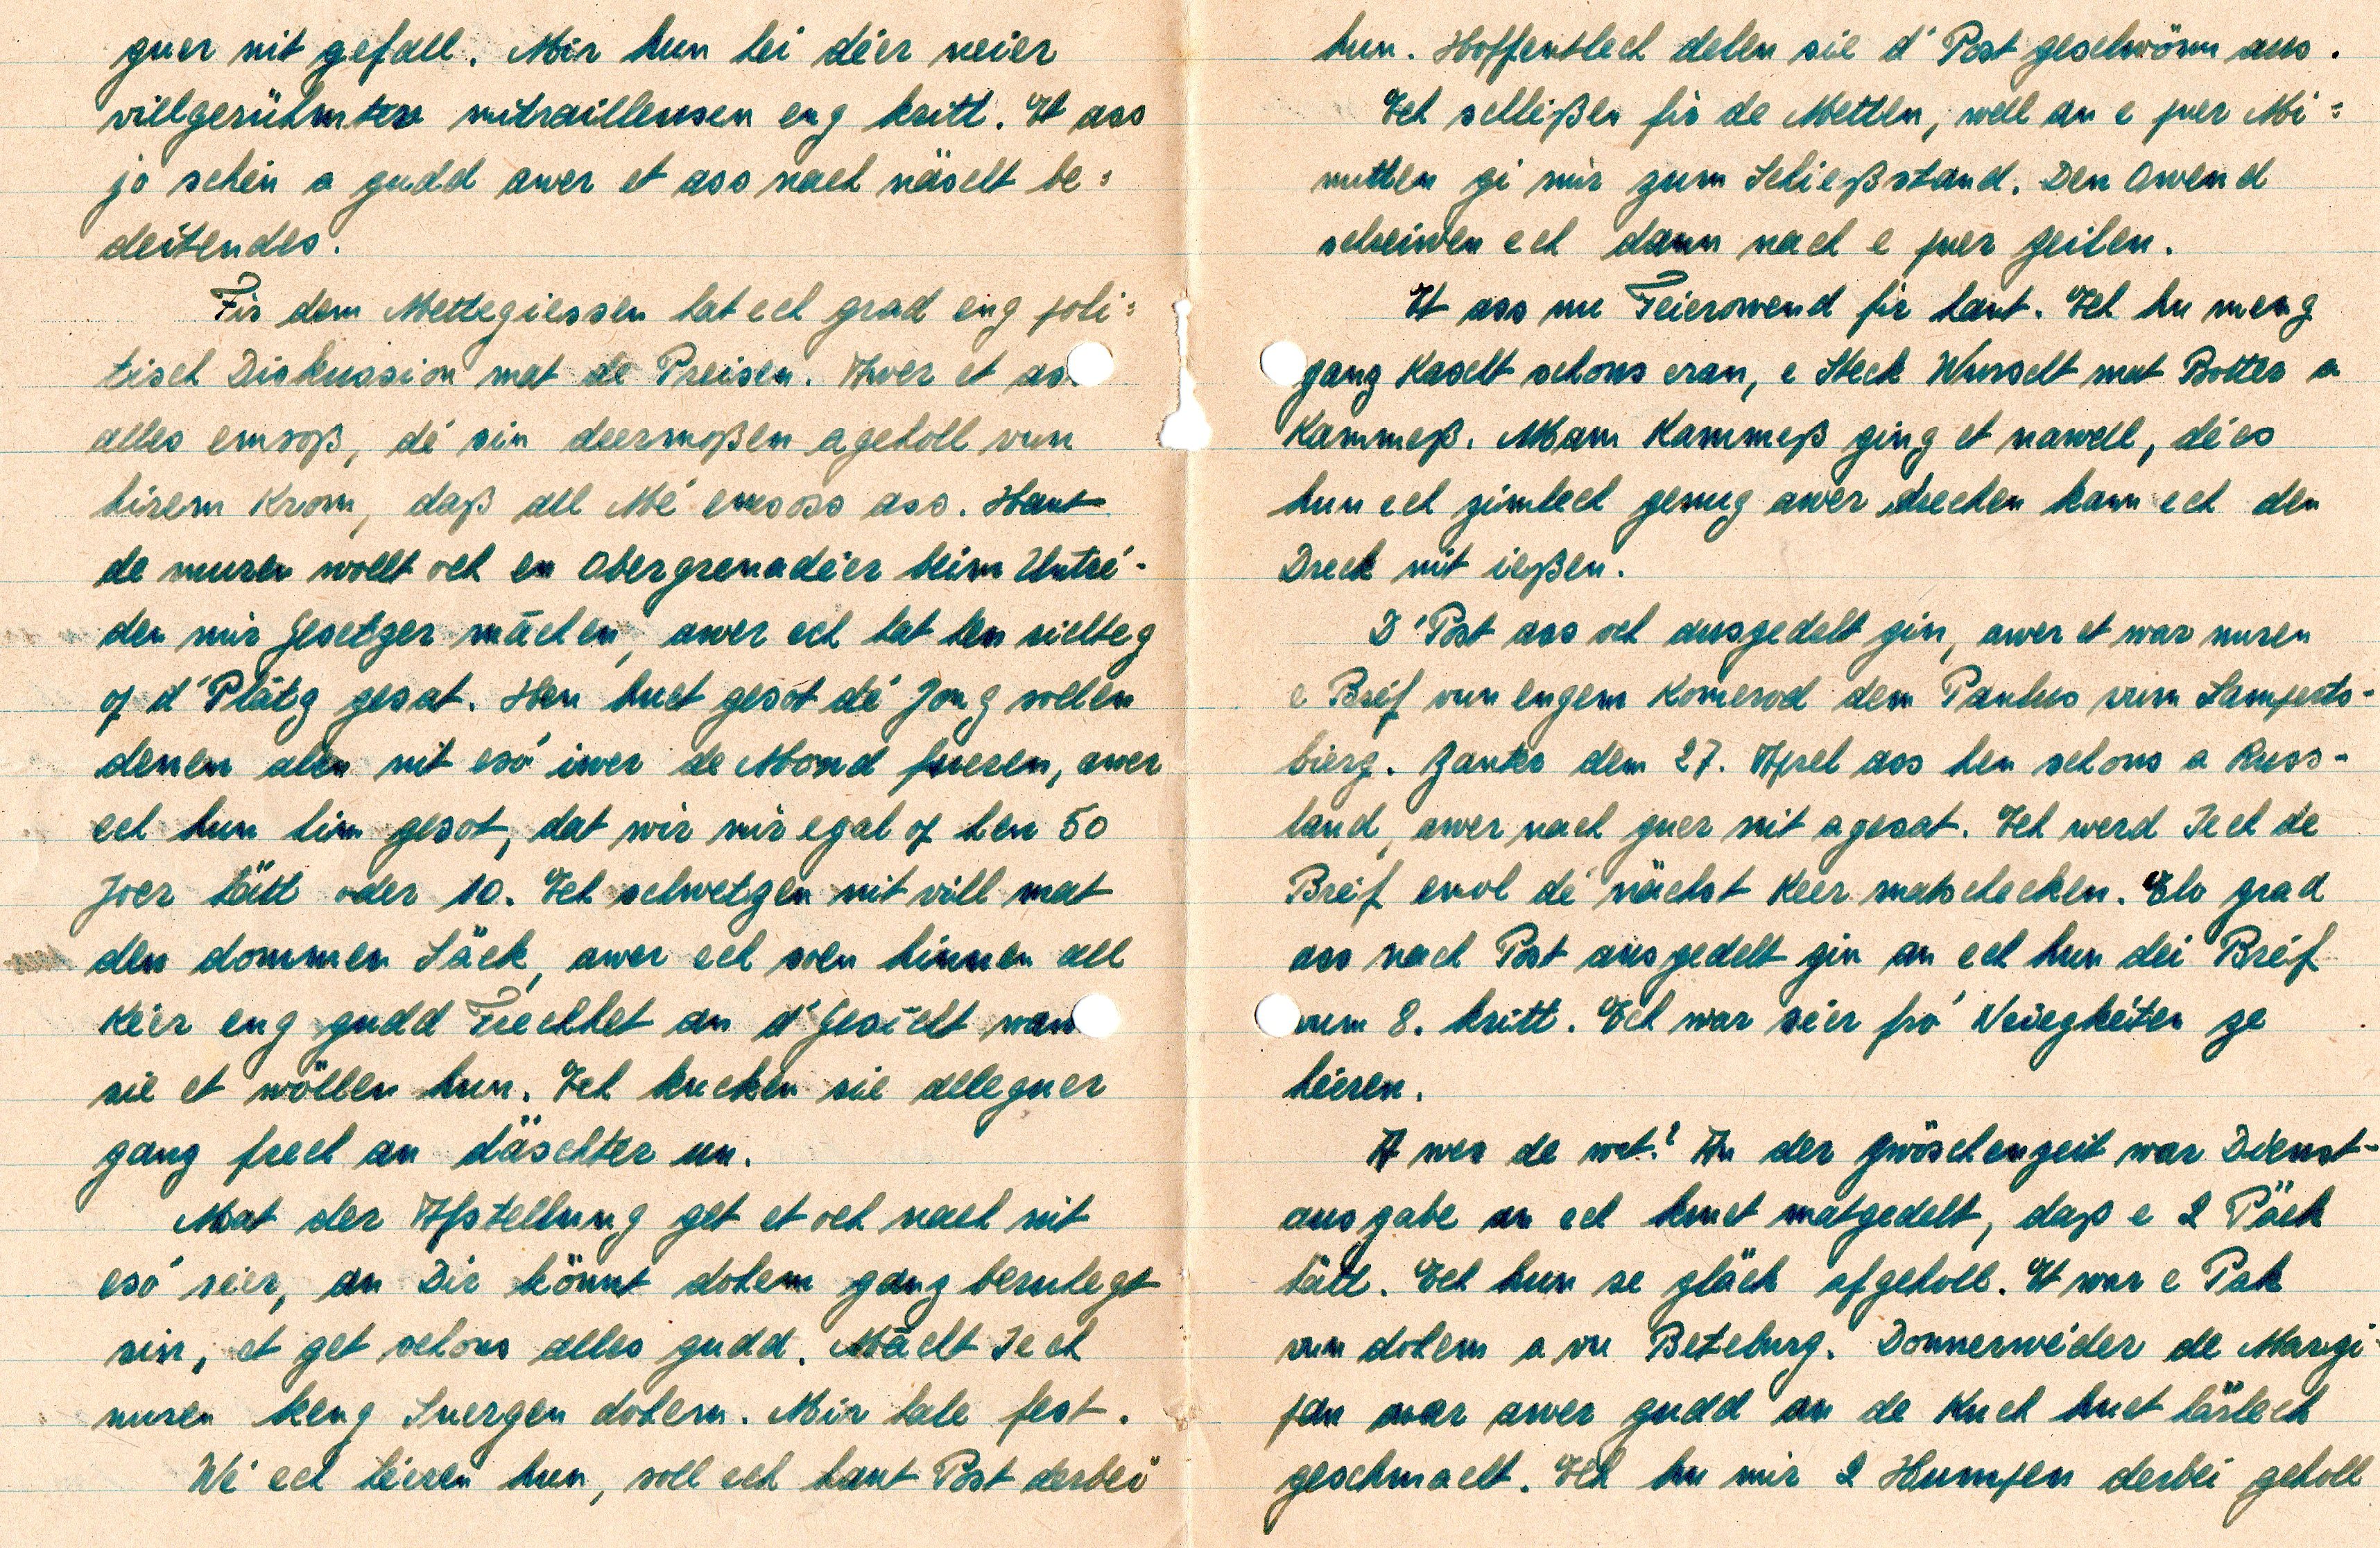 guer nit gefall. Mir hun hei déer neier
villgerühmter mitrailleusen eng kritt. Et ass
jo schéin a gudd awer et ass nach näischt be=
deitendes.
Fir dem Mettegiessen hat ech grad eng poli=
tisch Diskussion mat de Preisen. Awer et ass
alles emsoß, dé sin deermoßen ageholl vun
hirem Krom, daß all Mé emsoss ass. Haut
de muren wollt och en Obergrenadéer beim Untré-
den mir Gesetzer mächen, awer ech hat hen richteg
op d'Plätz gesat. Hen huet gesot dé Jong sollen
denen alen nit esó iwer de Mond fueren, awer
ech hun him gesot, dat wir mir egal op hen 50
Joer hätt oder 10. Ech schwetzen nit vill mat
den dommen Säck, awer ech soen hinnen all
Kéer eng gudd Frechhet an d'Gesicht wann
sie et wöllen hun. Ech kucken sie alleguer
ganz frech an däschter un.
Mat der Afstellung get et och nach nit
esó séier, an Dir könnt dohem ganz berulegt
sin, et get schons alles gudd. Mächt Iech
nuren keng Suergen dohem. Mir hale fest.
Wé ech héieren hun, soll ech haut Post derbei
hun. Hoffentlech delen sie d'Post geschwönn aus.
Ech schléißen fir de Metten, well an e puer Mi=
nutten gi mir zum Schießstand. Den Owend
schreiwen ech dann nach e puer Zeilen.
Et ass nu Feierowend fir haut. Ech hu meng
ganz Kascht schons eran, e Steck Wurscht mat Botter a
Kammeß. Mam Kammeß ging et nawell, dées
hun ech zimlech genug awer drechen kann ech den
Dreck nit ießen.
D'Post ass och ausgedelt gin, awer et war nuren
e Bréf vun engem Komerod dem Paulus vum Lamperts-
bierg. Zanter dem 27. Aprel ass hen schons a Russ-
land, awer nach guer nit agesat. Ech werd Iech de
Bréif ewol dé nächst Keer matschecken. Elo grad
ass nach Post ausgedelt gin an ech hun dei Bréif
vum 8. kritt. Ech war séier fró Neiegkéiten ze
héieren.
A wes de wat? An der Zwöschenzeit war Dienst-
ausgabe an ech kruet matgedelt, daß e 2 Päck
hätt. Ech hun se gläch ofgeholl. Et war e Pak
vun dohem a vu Beteburg. Donnerwéder de Marzi-
pan war awer gudd an de Kuch huet härlech
geschmacht. Ech hu mir 2 Humpen derbei geholl